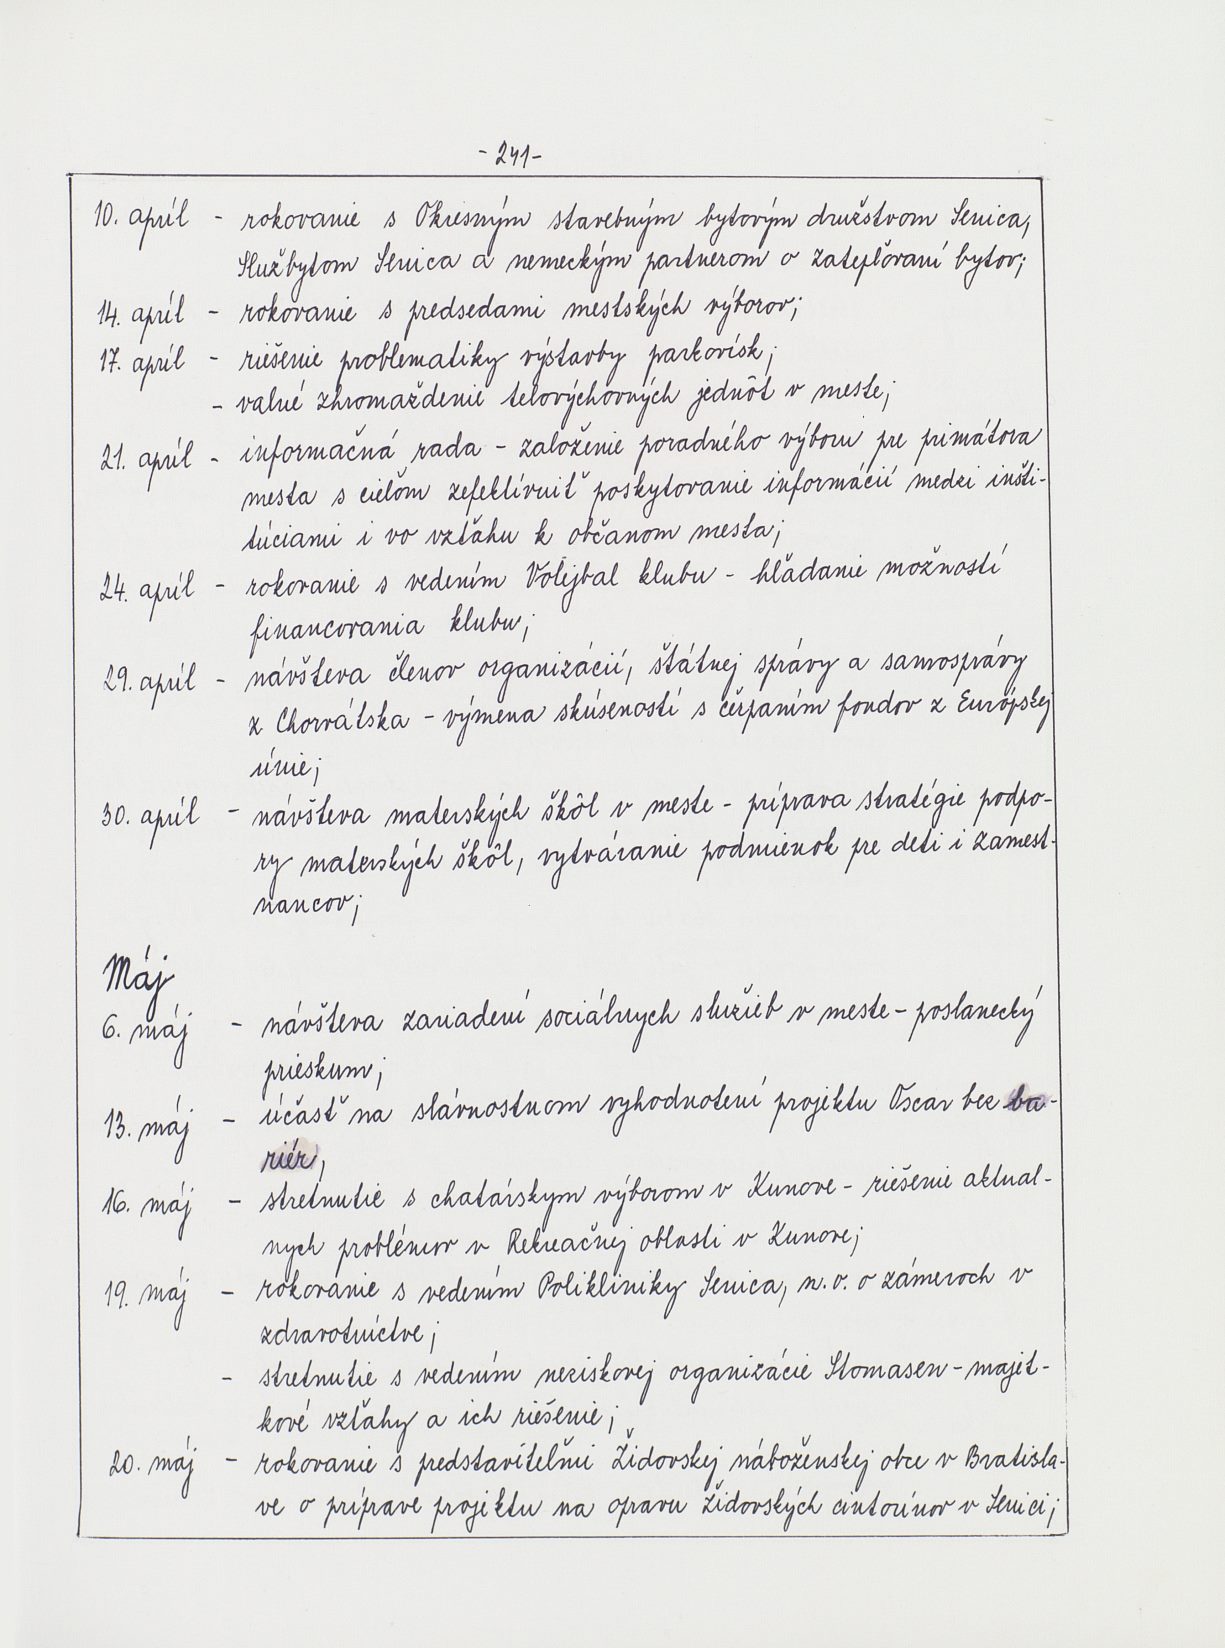 - 241 -
10. apríl - rokovanie s Okresným stavebným bytovým družstvom Senica,
Službytom Senica a nemeckým partnerom o zatepľovaní bytov;
14. apríl - rokovanie s predsedami mestských výborov;
17. apríl - riešenie problematiky výstavby parkovísk;
- valné zhromaždenie telovýchovných jednôt v meste;
21. apríl - informačná rada - založenie poradného výboru pre primátora
mesta s cieľom zefektívniť poskytovanie informácií medzi inšti-
túciami i vo vzťahu k občanom mesta;
24. apríl - rokovanie s vedením Volejbal klubu - hľadanie možností
financovania klubu;
29. apríl - návšteva členov organizácií, štátnej správy a samosprávy
z Chorvátska - výmena skúseností s čerpaním fondov z Európskej
únie;
30. apríl - návšteva materských škôl v meste - príprava stratégie podpo-
ry materských škôl, vytváranie podmienok pre deti i zamest-
nancov;
Máj
6. máj - návšteva zariadení sociálnych služieb v meste - poslanecký
prieskum;
13. máj - účasť na slávnostnom vyhodnotení projektu Oscar bez ba-
riér;
16. máj - stretnutie s chatárskym výborom v Kunove - riešenie aktuál-
nych problémov v Rekreačnej oblasti v Kunove;
19. máj - rokovanie s vedením Polikliniky Senica, n. o. o zámeroch v
zdravotníctve;
- stretnutie s vedením neziskovej organizácie Stomasen - majet-
kové vzťahy a ich riešenie;
20. máj - rokovanie s predstaviteľmi Židovskej náboženskej obce v Bratisla-
ve o príprave projektu na opravu židovských cintorínov v Senici;